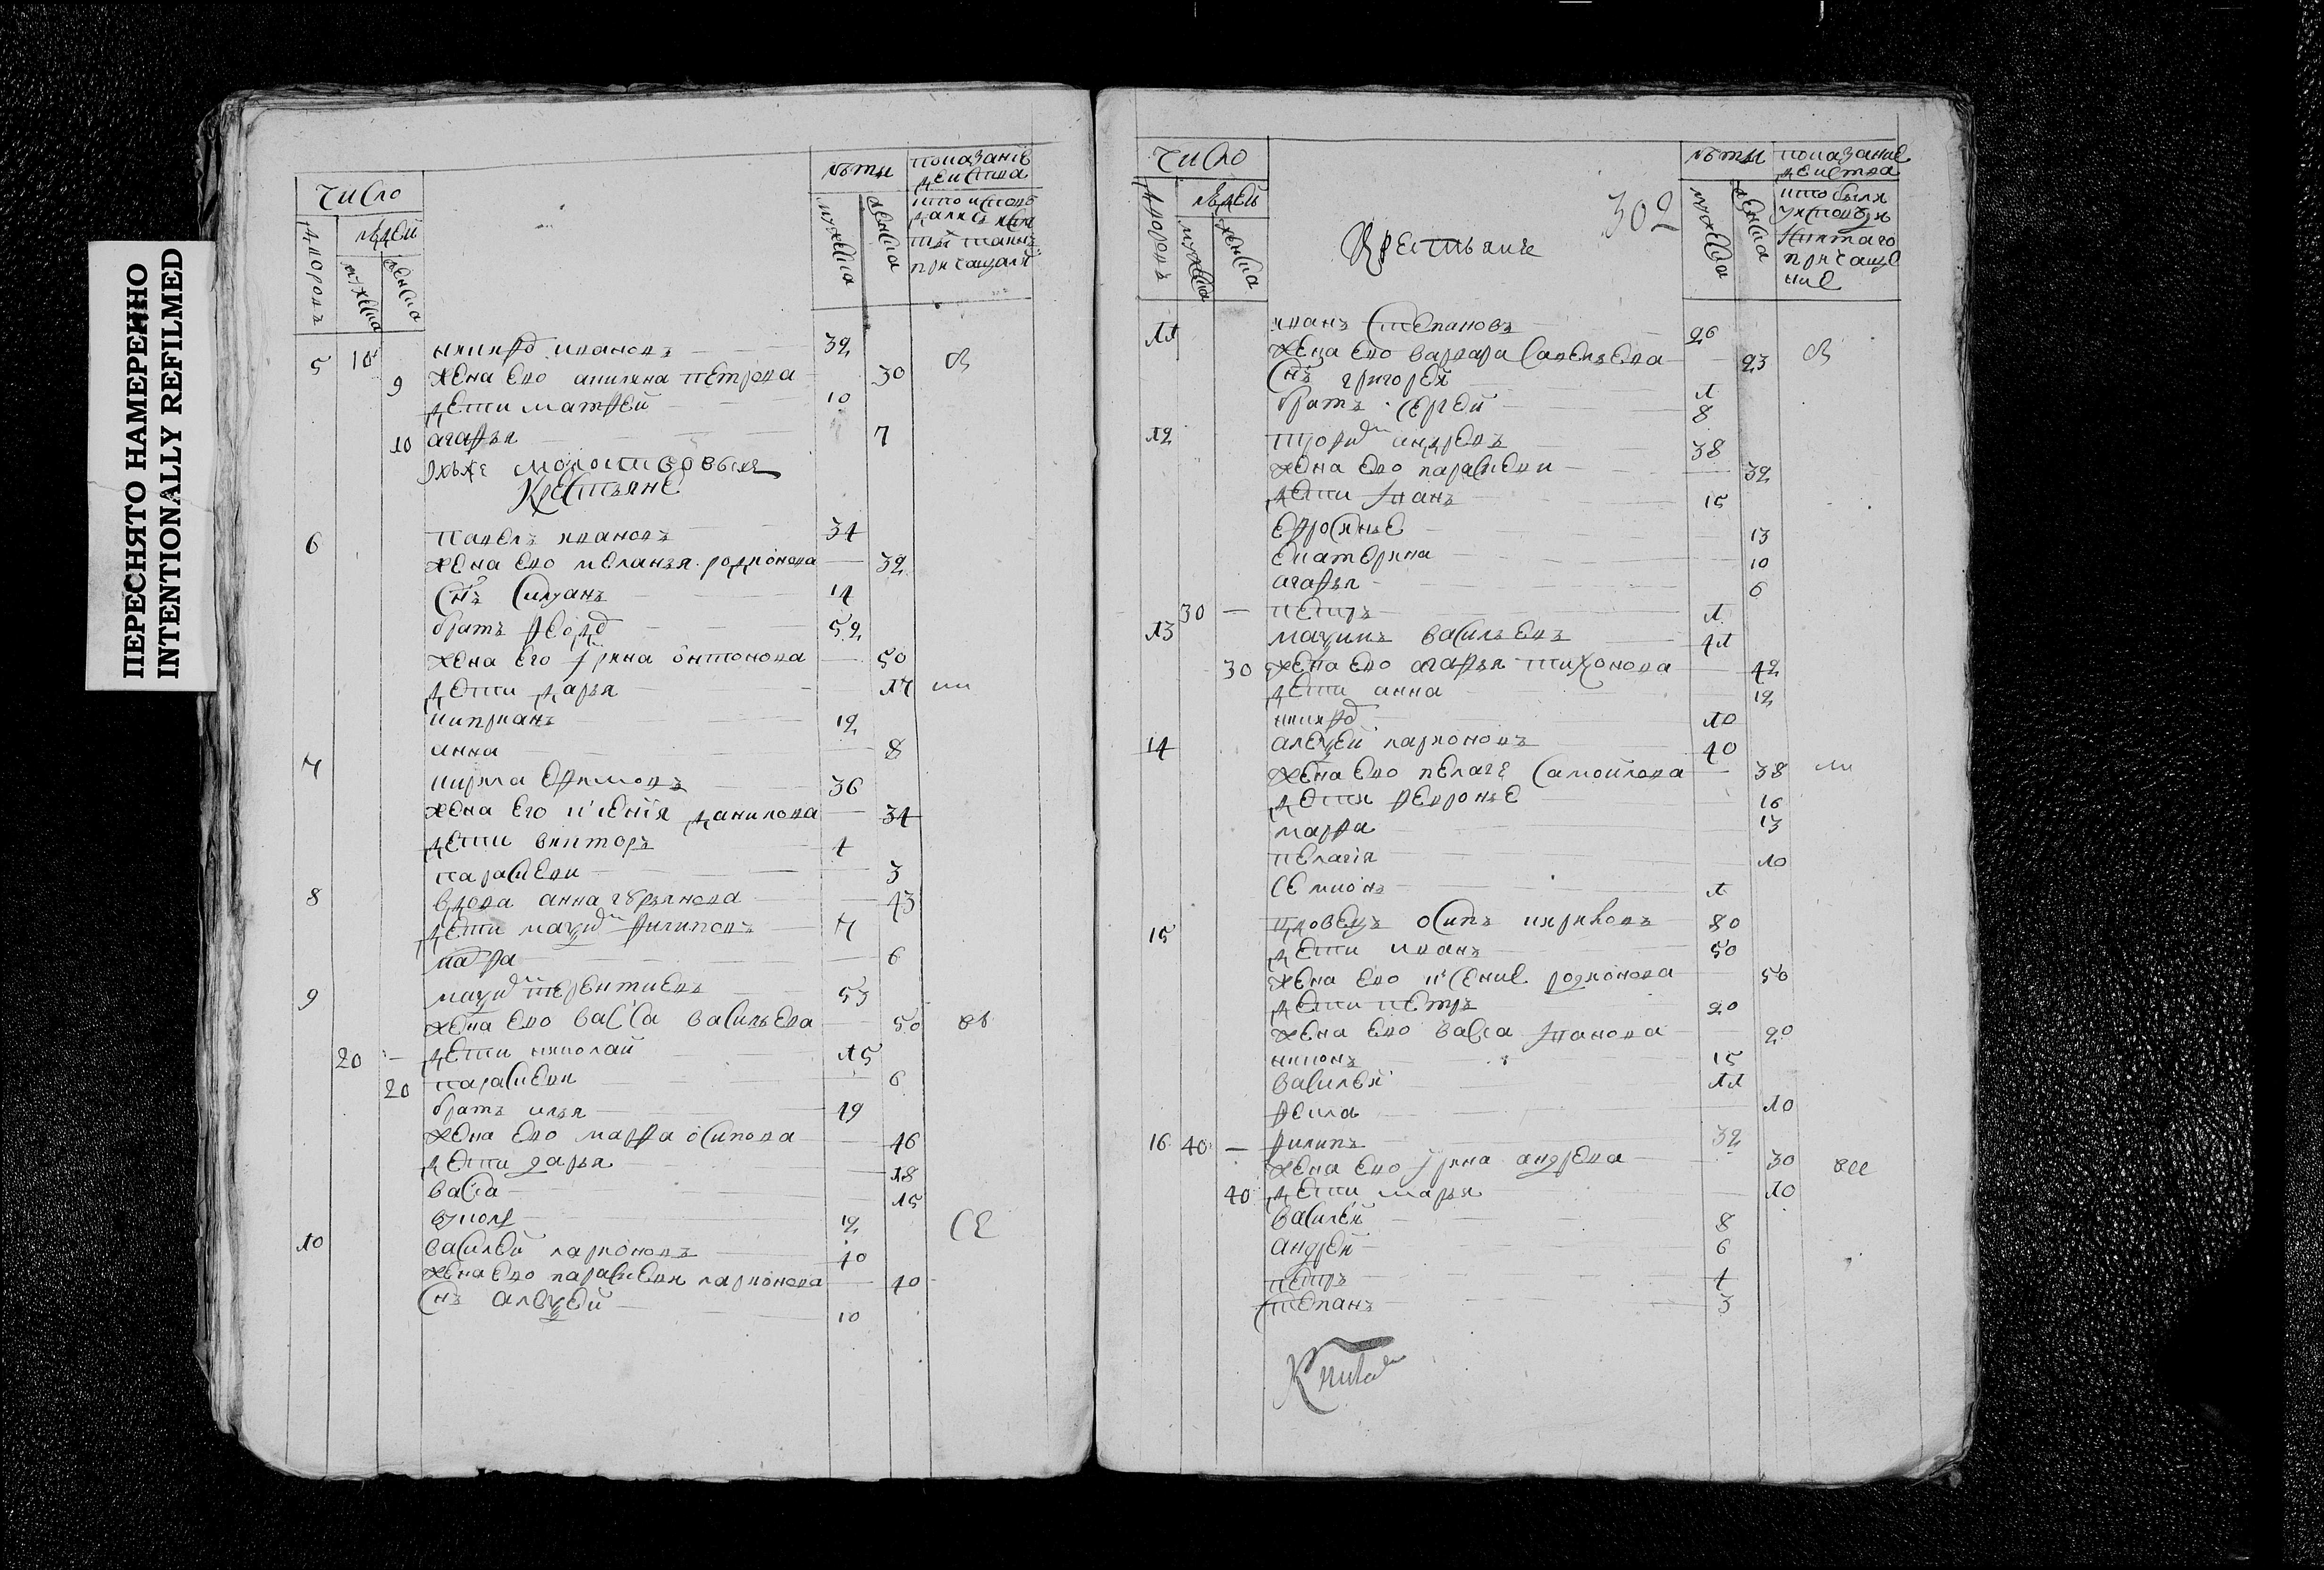 ПЕРЕСНЯТО НАМЕРЕННО
INTENTIONALLY REFILMED
число
дворовъ
людей
мужеска
женска
лѣты
мужеска
женска
показаніе
действа
кто исповѣ
дались и свя
тыхъ таинъ
причащали
5 10 никифоръ ивановъ 32
9 жена ево акилина петрова 30
дети матфей 10
10 агафья 7
Крестьяне
6 павелъ ивановъ 34
жена ево меланья родионова 32
снъ силуанъ 14
братъ федоръ 52
жена его ирина онтонова 50
дети дарья 17
киприанъ 12
анна 8
7 кирила ефимовъ 36
жена его ксения данилова 34
дети викторъ 4
параскеви 3
8 вдова анна 43
дети максимъ филиповъ 7
марфа 6
9 максимъ терентиевъ 53
жена ево васса васильева 50
20 дети николай 15
20 параскеви 6
братъ илья 49
жена ево марфа осипова 46
дети дарья 18
васса 15
вуколъ 12
10 василей ларионовъ 40
жена ево параскевия ларионова 40
снъ алексей 10
число
дворовъ
людей
мужеска
женска
Крестьяне
302
лѣты
мужеска
женска
показание
действа
кто были
у исповѣди
и святаго
причаще
ние
11 иванъ степановъ 26
жена ево варвара савельева 23
снъ григорей 1
братъ сергей 8
12 трофимъ андреевъ 38
жена ево параскеви 32
дети иванъ 15
ефросинье 13
екатерина 10
агафья 6
30 петръ 1
13 максимъ васильевъ 41
30 жена ево агафья тихонова 42
дети анна 12
никифоръ 10
14 алексей ларионовъ 40
жена ево пелаге самойлова 38
дети февронье 16
марфа 13
пелагия 10
семионъ 1
15 вдовецъ осипъ кириловъ 80
дети иванъ 50
жена ево ксение родионова 50
дети петръ 20
жена ево васса иванова 20
никонъ 15
василей 11
фекла 10
16 40 филипъ 32
жена ево ирина андреева 30
40 дети марья 10
василей 8
андрей 6
петръ 4
степанъ 3